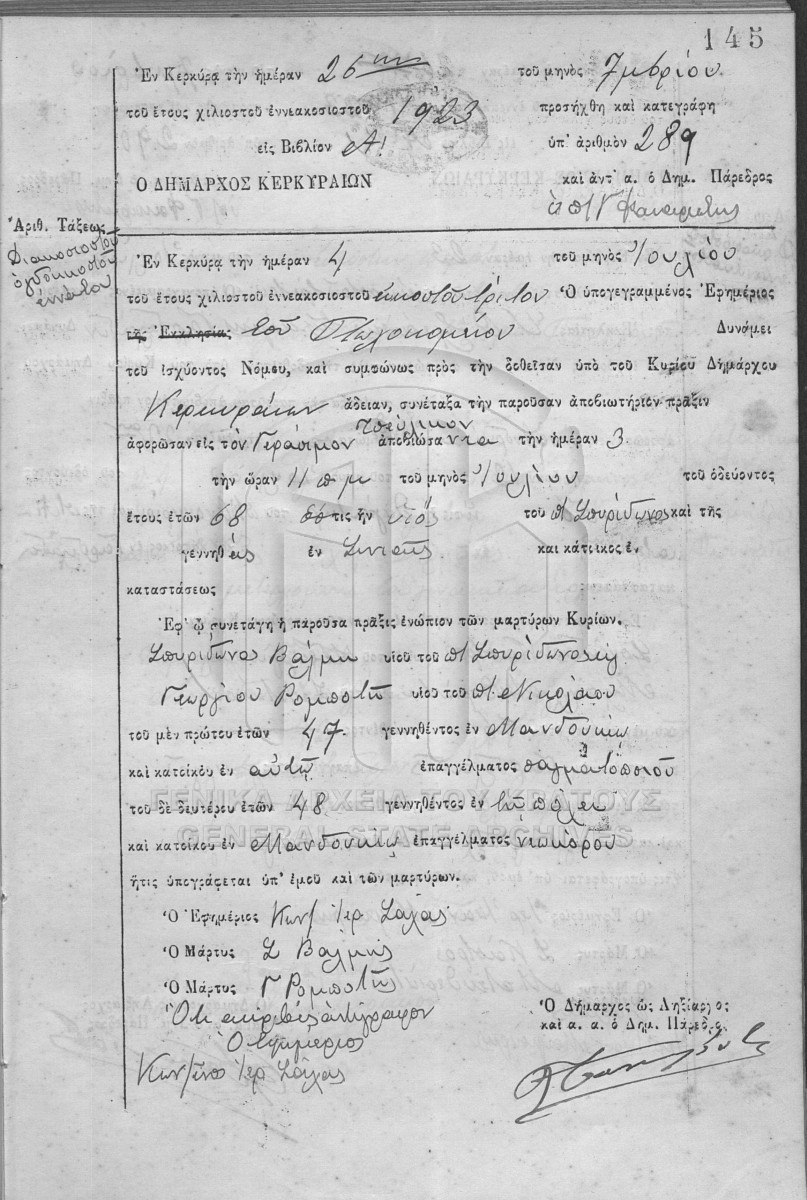 145
Ἐν Κερκύρᾳ τὴν ἡμέραν 26ην τοῦ μηνὸς 7μβρίου
τοῦ ἔτους χιλιοστοῦ ἐννεακοσιοστοῦ 1923 προσήχθη καὶ κατεγράφη
εἰς Βιβλίον Α! ὑπ' ἀριθμὸν 289
Ο ΔΗΜΑΡΧΟΣ ΚΕΡΚΥΡΑΙΩΝ καὶ ἀντ' α. ὁ Δημ. Πάρεδρος
Ἀριθ. Τάξεως
Διακοσιοστοῦ
ὀγδοηκοστοῦ
ἐννάτου
Ἐν Κερκύρᾳ τὴν ἡμέραν 4 τοῦ μηνὸς Ἰουλίου
τοῦ ἔτους χιλιοστοῦ ἐννεακοσιοστοῦ εἰκοστοῦ τρίτου Ὁ ὑπογεγραμμένος Ἐφημέριος
τῆς Ἐκκλησίας τοῦ Πτωχοκομείου Δυνάμει
τοῦ ἰσχύοντος Νόμου, καὶ συμφώνως πρὸς τὴν δοθεῖσαν ὑπὸ τοῦ Κυρίου Δημάρχου
Κερκυραίων ἄδειαν, συνέταξα τὴν παροῦσαν ἀποβιωτήριον πρᾶξιν
ἀφορῶσαν εἰς τὸν Γεράσιμον ἀποβιώσαντα τὴν ἡμέραν 3
τὴν ὥραν 11 π μ τοῦ μηνὸς Ἰουλίου τοῦ ὁδεύοντος
ἔτους ἐτῶν 68 ὅστις ἦν υἱός τοῦ π Σπυρίδωνος καὶ τῆς
γεννηθείς ἐν Σινιές και κάτοικος ἐν
καταστάσεως
Ἐφ' ᾧ συνετάγη ἡ παροῦσα πρᾶξις ἐνώπιον τῶν μαρτύρων Κυρίων.
Σπυρίδωνος Βάλμη υἱοῦ τοῦ π Σπυρίδωνος
Γεωργίου Ρομποτῆ υἱοῦ τοῦ π. Νικολάου
τοῦ μὲν πρώτου ἐτῶν 47 γεννηθέντος ἐν Μανδουκίῳ
καὶ κατοίκου ἐν αὐτῷ ἐπαγγέλματος παγματοποιοῦ
τοῦ δὲ δευτέρου ἐτῶν 48 γεννηθέντος ἐν τῇ πόλει
καὶ κατοίκου ἐν Μανδουκίῳ ἐπαγγέλματος νεωκόρου
ἥτις ὑπογράφεται ὑπ' ἐμοῦ καὶ τῶν μαρτύρων.
Ὁ Ἐφημέριος Κων/ Ἱερ Σάλας
Ὁ Μάρτυς Σ Βάλμης
Ὁ Μάρτυς Γ Ρομποτῆς
Ὅτι ἀκριβὲς ἀντίγραφον
Ὁ Ἐφημέριος
Κων/ῖνος Ἱερ Σάλας
Ὁ Δήμαρχος ὡς Ληξίαρχος
καὶ α. α. ὁ Δημ. Πάρεδρος
ΓΕΝΙΚΑ ΑΡΧΕΙΑ ΤΟΥ ΚΡΑΤΟΥΣ
GENERAL STATE ARCHIVES